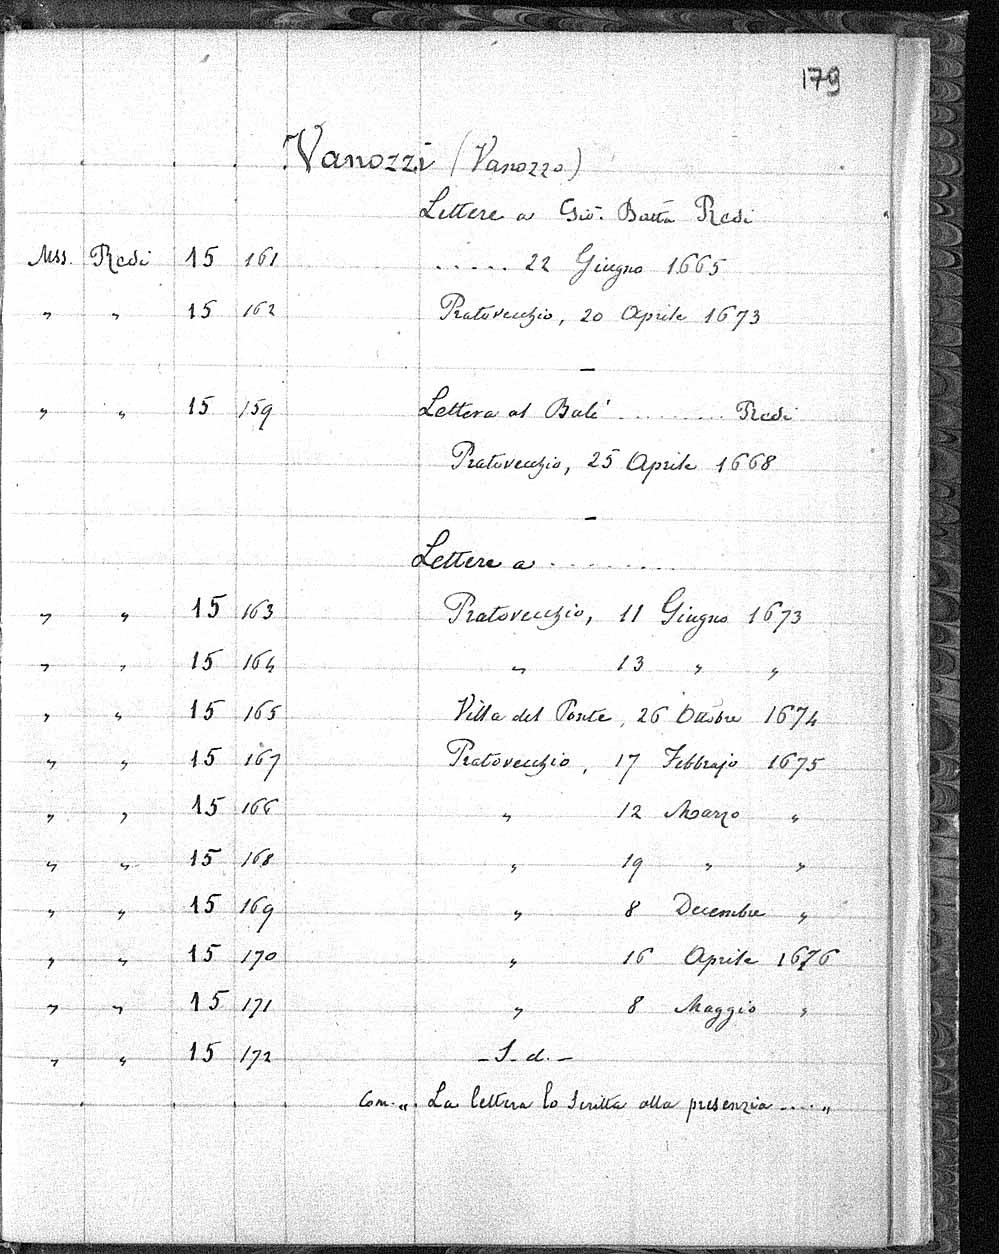 179
Vanozzi (Vanozzo)
Lettere a Gio. Batta Redi
Mss. Redi 15 161 ..... 22 Giugno 1665
" " 15 162 Pratovecchio, 20 Aprile 1673
–
" " 15 159 Lettera al Balì ......... Redi
Pratovecchio, 25 Aprile 1668
–
Lettere a .........
" " 15 163 Pratovecchio, 11 Giugno 1673
" " 15 164 " 13 " "
" " 15 165 Villa del Ponte, 26 Ottobre 1674
" " 15 167 Pratovecchio, 17 Febbrajo 1675
" " 15 166 " 12 Marzo "
" " 15 168 " 19 " "
" " 15 169 " 8 Decembre "
" " 15 170 " 16 Aprile 1676
" " 15 171 " 8 Maggio "
" " 15 172 – S. d. –
Com. „ La lettera lo scritta alla presenzia .... „